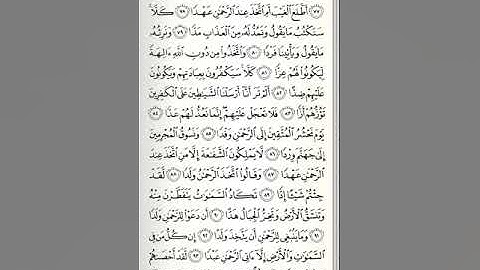 ٧٧ أَطَّلَعَ ٱلْغَيْبَ أَمِ ٱتَّخَذَ عِندَ ٱلرَّحْمَٰنِ عَهْدًا ٧٨ كَلَّا
سَنَكْتُبُ مَا يَقُولُ وَنَمُدُّ لَهُۥ مِنَ ٱلْعَذَابِ مَدًّا ٧٩ وَنَرِثُهُۥ
مَا يَقُولُ وَيَأْتِينَا فَرْدًا ٨٠ وَٱتَّخَذُوا۟ مِن دُونِ ٱللَّهِ ءَالِهَةً
لِّيَكُونُوا۟ لَهُمْ عِزًّا ٨١ كَلَّا سَيَكْفُرُونَ بِعِبَادَتِهِمْ وَيَكُونُونَ
عَلَيْهِمْ ضِدًّا ٨٢ أَلَمْ تَرَ أَنَّآ أَرْسَلْنَا ٱلشَّيَٰطِينَ عَلَى ٱلْكَٰفِرِينَ
تَؤُزُّهُمْ أَزًّا ٨٣ فَلَا تَعْجَلْ عَلَيْهِمْ إِنَّمَا نَعُدُّ لَهُمْ عَدًّا ٨٤
يَوْمَ نَحْشُرُ ٱلْمُتَّقِينَ إِلَى ٱلرَّحْمَٰنِ وَفْدًا ٨٥ وَنَسُوقُ ٱلْمُجْرِمِينَ
إِلَىٰ جَهَنَّمَ وِرْدًا ٨٦ لَّا يَمْلِكُونَ ٱلشَّفَٰعَةَ إِلَّا مَنِ ٱتَّخَذَ عِندَ
ٱلرَّحْمَٰنِ عَهْدًا ٨٧ وَقَالُوا۟ ٱتَّخَذَ ٱلرَّحْمَٰنُ وَلَدًا ٨٨ لَّقَدْ
جِئْتُمْ شَيْـًٔا إِدًّا ٨٩ تَكَادُ ٱلسَّمَٰوَٰتُ يَتَفَطَّرْنَ مِنْهُ
وَتَنشَقُّ ٱلْأَرْضُ وَتَخِرُّ ٱلْجِبَالُ هَدًّا ٩٠ أَن دَعَوْا۟ لِلرَّحْمَٰنِ وَلَدًا
٩١ وَمَا يَنۢبَغِى لِلرَّحْمَٰنِ أَن يَتَّخِذَ وَلَدًا ٩٢ إِن كُلُّ مَن فِى
ٱلسَّمَٰوَٰتِ وَٱلْأَرْضِ إِلَّآ ءَاتِى ٱلرَّحْمَٰنِ عَبْدًا ٩٣ لَّقَدْ أَحْصَىٰهُمْ